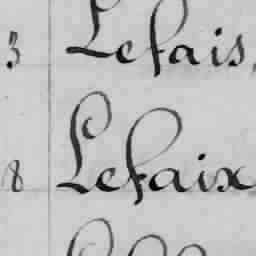 3 Lefais,
8 Lefaix